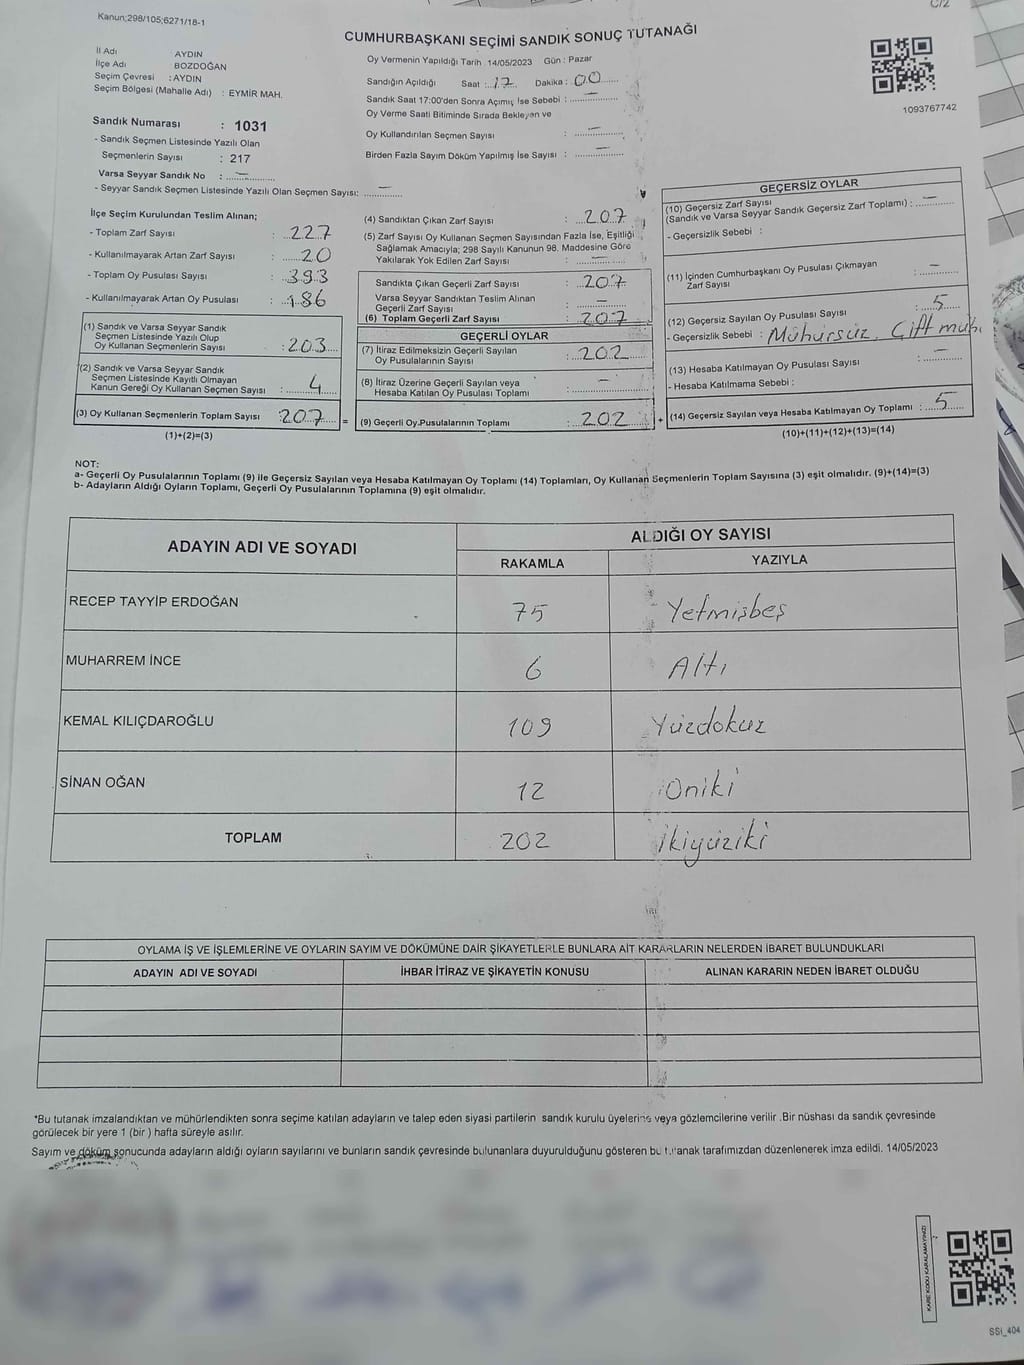 C/2
Kanun;298/105;6271/18-1
CUMHURBAŞKANI SEÇİMİ SANDIK SONUÇ TUTANAĞI
İl Adı : AYDIN
İlçe Adı : BOZDOĞAN
Seçim Çevresi : AYDIN
Seçim Bölgesi (Mahalle Adı) : EYMİR MAH.
Sandık Numarası : 1031
- Sandık Seçmen Listesinde Yazılı Olan
Seçmenlerin Sayısı : 217
Varsa Seyyar Sandık No : —
- Seyyar Sandık Seçmen Listesinde Yazılı Olan Seçmen Sayısı: —
Oy Vermenin Yapıldığı Tarih : 14/05/2023 Gün : Pazar
Sandığın Açıldığı Saat : 17 Dakika : 00
Sandık Saat 17:00'den Sonra Açımış İse Sebebi : —
Oy Verme Saati Bitiminde Sırada Bekleyen ve
Oy Kullandırılan Seçmen Sayısı : —
Birden Fazla Sayım Döküm Yapılmış İse Sayısı : —
1093767742
İlçe Seçim Kurulundan Teslim Alınan;
- Toplam Zarf Sayısı : 227
- Kullanılmayarak Artan Zarf Sayısı : 20
- Toplam Oy Pusulası Sayısı : 393
- Kullanılmayarak Artan Oy Pusulası : 186
(1) Sandık ve Varsa Seyyar Sandık
Seçmen Listesinde Yazılı Olup
Oy Kullanan Seçmenlerin Sayısı : 203
(2) Sandık ve Varsa Seyyar Sandık
Seçmen Listesinde Kayıtlı Olmayan
Kanun Gereği Oy Kullanan Seçmen Sayısı : 4
(3) Oy Kullanan Seçmenlerin Toplam Sayısı : 207 =
(1)+(2)=(3)
(4) Sandıktan Çıkan Zarf Sayısı : 207
(5) Zarf Sayısı Oy Kullanan Seçmen Sayısından Fazla İse, Eşitliği
Sağlamak Amacıyla; 298 Sayılı Kanunun 98. Maddesine Göre
Yakılarak Yok Edilen Zarf Sayısı : —
Sandıkta Çıkan Geçerli Zarf Sayısı : 207
Varsa Seyyar Sandıktan Teslim Alınan
Geçerli Zarf Sayısı : —
(6) Toplam Geçerli Zarf Sayısı : 207
GEÇERLİ OYLAR
(7) İtiraz Edilmeksizin Geçerli Sayılan
Oy Pusulalarının Sayısı : 202
(8) İtiraz Üzerine Geçerli Sayılan veya
Hesaba Katılan Oy Pusulası Toplamı : —
(9) Geçerli Oy Pusulalarının Toplamı : 202 +
GEÇERSİZ OYLAR
(10) Geçersiz Zarf Sayısı
(Sandık ve Varsa Seyyar Sandık Geçersiz Zarf Toplamı) : —
- Geçersizlik Sebebi :
(11) İçinden Cumhurbaşkanı Oy Pusulası Çıkmayan
Zarf Sayısı : —
(12) Geçersiz Sayılan Oy Pusulası Sayısı : 5
- Geçersizlik Sebebi : Mühürsüz, Çift müh.
(13) Hesaba Katılmayan Oy Pusulası Sayısı : —
- Hesaba Katılmama Sebebi :
(14) Geçersiz Sayılan veya Hesaba Katılmayan Oy Toplamı : 5
(10)+(11)+(12)+(13)=(14)
NOT:
a- Geçerli Oy Pusulalarının Toplamı (9) ile Geçersiz Sayılan veya Hesaba Katılmayan Oy Toplamı (14) Toplamları, Oy Kullanan Seçmenlerin Toplam Sayısına (3) eşit olmalıdır. (9)+(14)=(3)
b- Adayların Aldığı Oyların Toplamı, Geçerli Oy Pusulalarının Toplamına (9) eşit olmalıdır.
ADAYIN ADI VE SOYADI ALDIĞI OY SAYISI
RAKAMLA YAZIYLA
RECEP TAYYİP ERDOĞAN 75 Yetmişbeş
MUHARREM İNCE 6 Altı
KEMAL KILIÇDAROĞLU 109 Yüzdokuz
SİNAN OĞAN 12 Oniki
TOPLAM 202 İkiyüziki
OYLAMA İŞ VE İŞLEMLERİNE VE OYLARIN SAYIM VE DÖKÜMÜNE DAİR ŞİKAYETLERLE BUNLARA AİT KARARLARIN NELERDEN İBARET BULUNDUKLARI
ADAYIN ADI VE SOYADI İHBAR İTİRAZ VE ŞİKAYETİN KONUSU ALINAN KARARIN NEDEN İBARET OLDUĞU
*Bu tutanak imzalandıktan ve mühürlendikten sonra seçime katılan adayların ve talep eden siyasi partilerin sandık kurulu üyelerine veya gözlemcilerine verilir .Bir nüshası da sandık çevresinde
görülecek bir yere 1 (bir ) hafta süreyle asılır.
Sayım ve döküm sonucunda adayların aldığı oyların sayılarını ve bunların sandık çevresinde bulunanlara duyurulduğunu gösteren bu tutanak tarafımızdan düzenlenerek imza edildi. 14/05/2023
KARE KODU KARALAMAYINIZ!
SSt_404